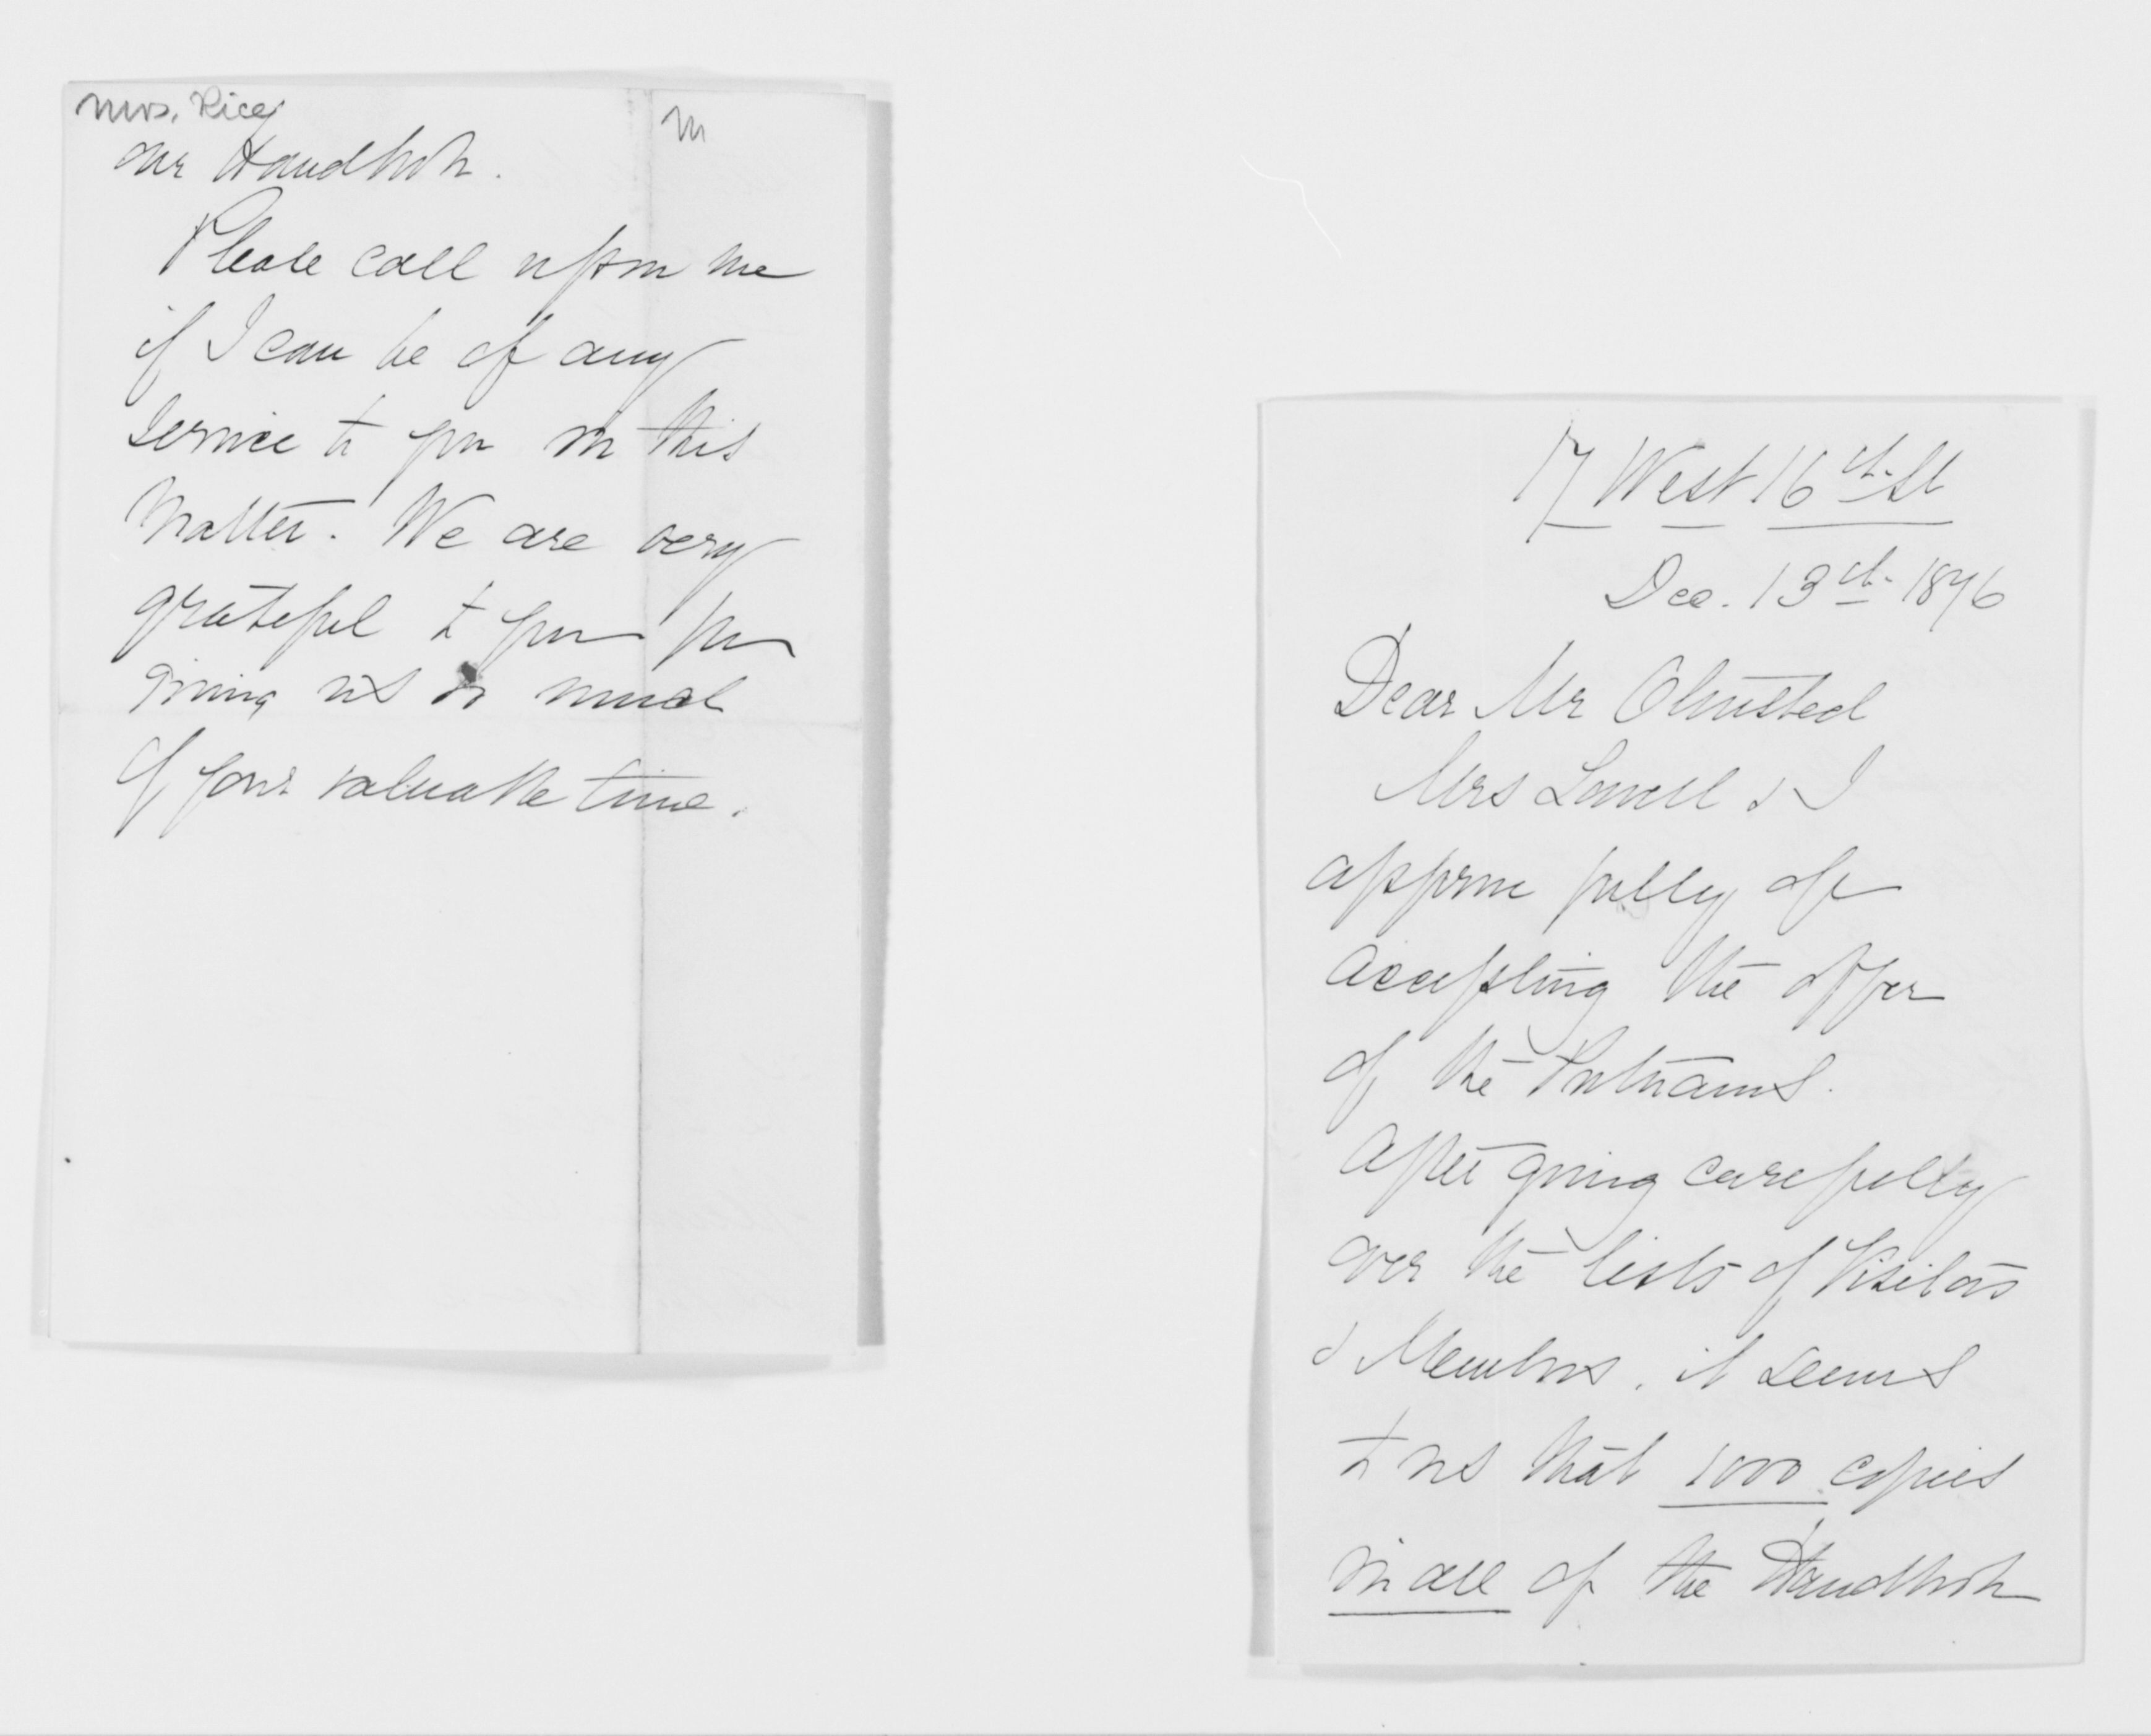 Mrs. Rice
our Handbook.
Please call upon me
if I can be of any
service to you in this
matter. We are very
grateful to you for
giving us so much
of your valuable time.
M
17 West 16th St
Dec. 13th 1876
Dear Mr Olmsted
Mrs Lowell & I
approve fully of
accepting the offer
of the Putnams.
After going carefully
over the lists of Visitors
& Members, it seems
to us that 1000 copies
in all of the Handbook